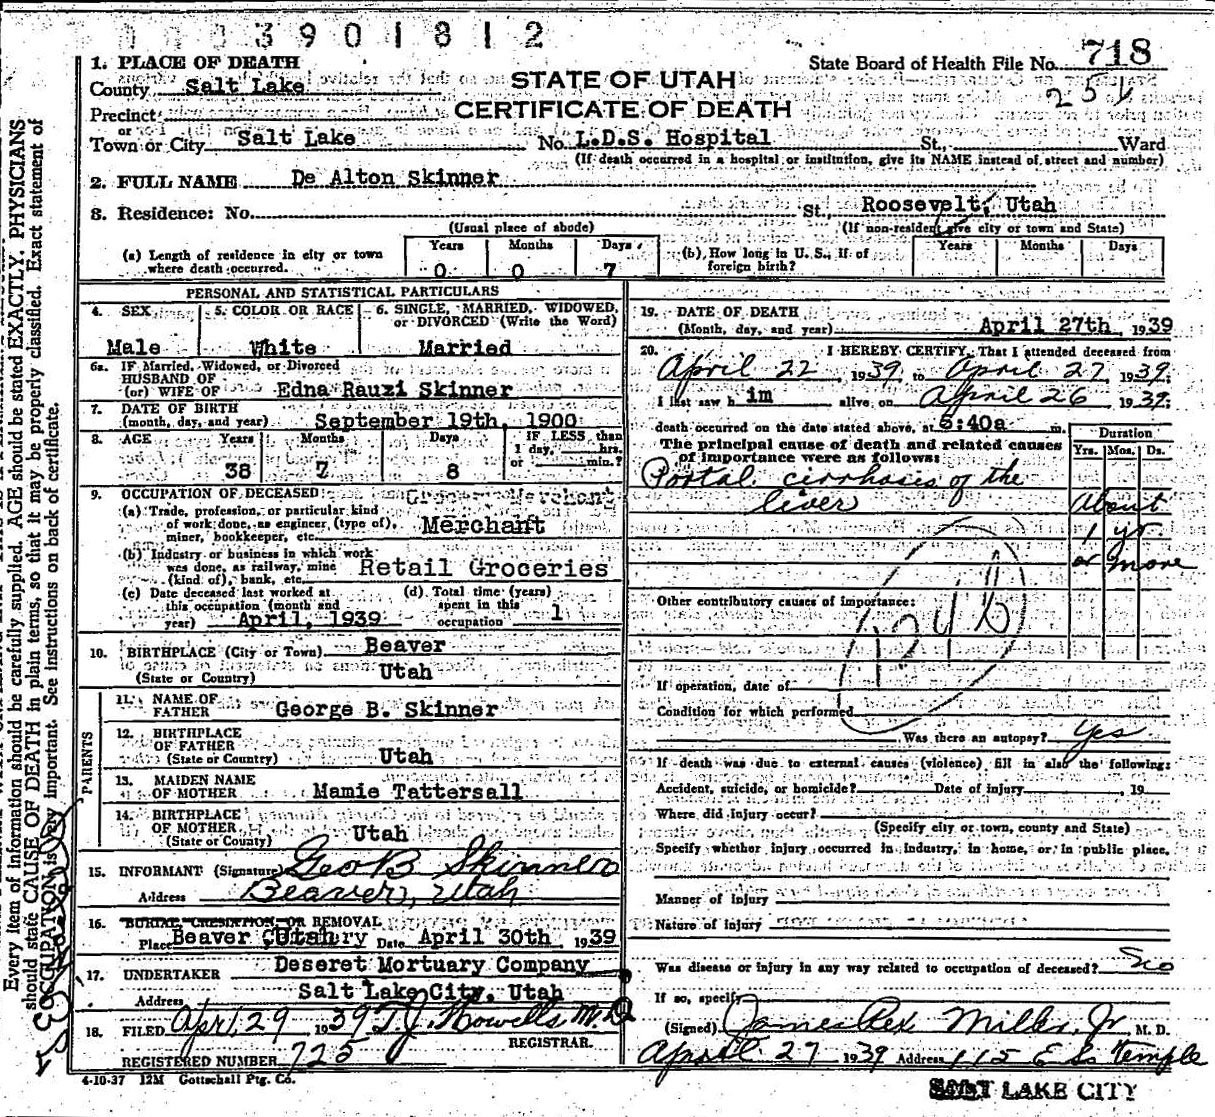 3901812
1. PLACE OF DEATH
State Board of Health File No. 718
County Salt Lake
STATE OF UTAH
25
Precinct
CERTIFICATE OF DEATH
or
Town or City Salt Lake No. L.D.S. Hospital St., Ward
(If death occurred in a hospital or institution, give its NAME instead of street and number)
2. FULL NAME De Alton Skinner
3. Residence: No. St., Roosevelt, Utah
(Usual place of abode) (If non-resident give city or town and State)
(a) Length of residence in city or town where death occurred. Years 0 Months 0 Days 7
(b) How long in U. S., if of foreign birth? Years Months Days
PERSONAL AND STATISTICAL PARTICULARS
4. SEX Male
5. COLOR OR RACE White
6. SINGLE, MARRIED, WIDOWED, or DIVORCED (Write the Word) Married
6a. IF Married, Widowed, or Divorced
HUSBAND OF
(or) WIFE OF Edna Rauzi Skinner
7. DATE OF BIRTH
(month, day, and year) September 19th, 1900
8. AGE Years 38 Months 7 Days 8 IF LESS than 1 day, hrs. or min.?
9. OCCUPATION OF DECEASED Grocery Merchant
(a) Trade, profession, or particular kind
of work done, as engineer, (type of),
miner, bookkeeper, etc. Merchant
(b) Industry or business in which work
was done, as railway, mine
(kind of), bank, etc. Retail Groceries
(c) Date deceased last worked at
this occupation (month and
year) April, 1939
(d) Total time (years)
spent in this
occupation 1
10. BIRTHPLACE (City or Town) Beaver
(State or Country) Utah
PARENTS
11. NAME OF
FATHER George B. Skinner
12. BIRTHPLACE
OF FATHER
(State or Country) Utah
13. MAIDEN NAME
OF MOTHER Mamie Tattersall
14. BIRTHPLACE
OF MOTHER
(State or Country) Utah
15. INFORMANT (Signature) Geo B Skinner
Address Beaver, Utah
16. BURIAL CREMATION OR REMOVAL
Place Beaver Utah Date April 30th, 1939
17. UNDERTAKER Deseret Mortuary Company
Address Salt Lake City, Utah
18. FILED Apr. 29 1939 T. J. Howells M.D.
REGISTRAR.
REGISTERED NUMBER 725
4-10-37 12M Gottschall Ptg. Co.
19. DATE OF DEATH
(Month, day, and year) April 27th, 1939
20. I HEREBY CERTIFY, That I attended deceased from
April 22, 1939 to April 27 1939;
I last saw h im alive on April 26 1939;
death occurred on the date stated above, at 6:40a m.
The principal cause of death and related causes
of importance were as follows:
Duration
Yrs. Mos. Ds.
Portal cirrhosis of the
liver
About
1 yr.
or more
Other contributory causes of importance:
124b
If operation, date of
Condition for which performed
Was there an autopsy? Yes
If death was due to external causes (violence) fill in also the following:
Accident, suicide, or homicide? Date of injury , 19
Where did injury occur?
(Specify city or town, county and State)
Specify whether injury occurred in industry, in home, or in public place.
Manner of Injury
Nature of Injury
Was disease or injury in any way related to occupation of deceased? No
If so, specify
(Signed) James Rex Miller, Jr. M. D.
April 27 1939 Address 115 E So Temple
SALT LAKE CITY
Every item of information should be carefully supplied. AGE should be stated EXACTLY. PHYSICIANS
should state CAUSE OF DEATH in plain terms, so that it may be properly classified. Exact statement of
OCCUPATION is very important. See instructions on back of certificate.